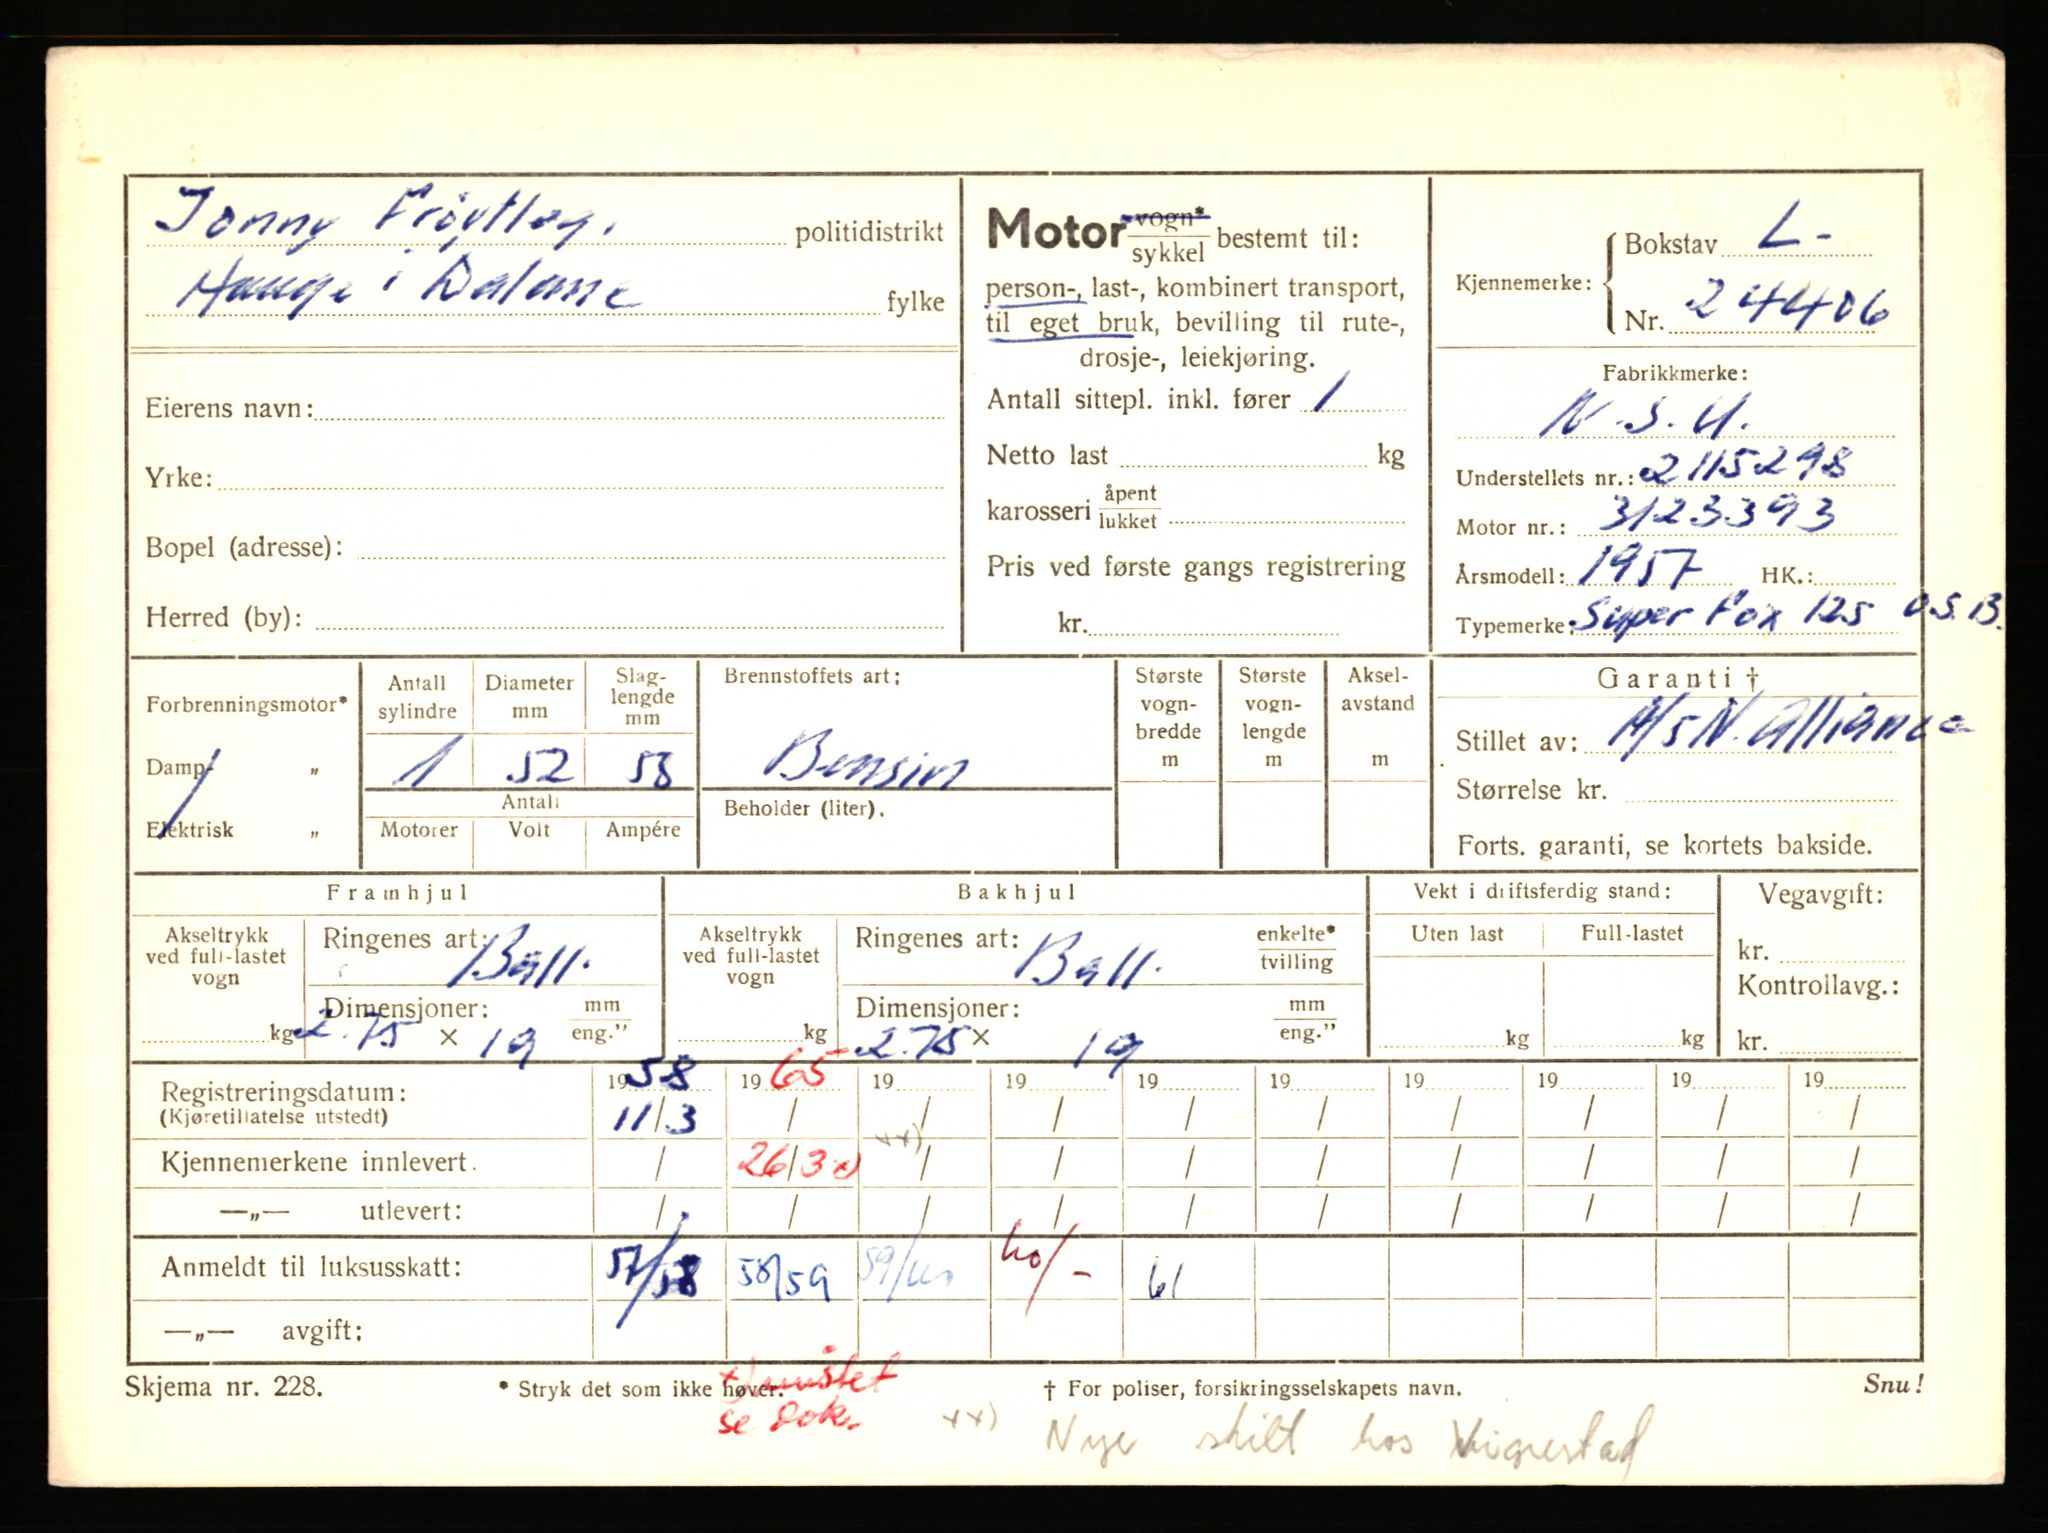 Jonny Frøytlog. politidistrikt
Hauge i Dalane fylke
Eierens navn:
Yrke:
Bopel (adresse):
Herred (by):
Motor vogn* / sykkel bestemt til:
person-, last-, kombinert transport,
til eget bruk, bevilling til rute-,
drosje-, leiekjøring.
Antall sittepl. inkl. fører 1
Netto last kg
karosseri åpent / lukket
Pris ved første gangs registrering
kr.
Kjennemerke: Bokstav L-
Nr. 24406
Fabrikkmerke:
N.S.U.
Understellets nr.: 2115298
Motor nr.: 3123393
Årsmodell: 1957 HK.:
Typemerke: Super Fox 125 O.S.B.
Forbrenningsmotor*
Damp- „
Elektrisk „
Antall sylindre Diameter mm Slaglengde mm
1 52 58
Antall
Motorer Volt Ampére
Brennstoffets art:
Bensin
Beholder (liter).
Største vogn-bredde m
Største vogn-lengde m
Aksel-avstand m
Garanti †
Stillet av: A/S N. Alliance
Størrelse kr.
Forts. garanti, se kortets bakside.
Framhjul
Akseltrykk ved full-lastet vogn
kg
Ringenes art: Ball.
Dimensjoner: mm / eng."
2.75 × 19
Bakhjul
Akseltrykk ved full-lastet vogn
kg
Ringenes art: Ball. enkelte* / tvilling
Dimensjoner: mm / eng."
2.75 × 19
Vekt i driftsferdig stand:
Uten last Full-lastet
kg kg
Vegavgift:
kr.
Kontrollavg.:
kr.
Registreringsdatum: 1958 1965 19 19 19 19 19 19 19 19
(Kjøretillatelse utstedt) 11/3 / / / / / / / / /
Kjennemerkene innlevert. / 26/3 x) xx) / / / / / / / /
—„— utlevert: / / / / / / / / / /
Anmeldt til luksusskatt: 57/58 58/59 59/60 60/- 61
—„— avgift:
Skjema nr. 228. * Stryk det som ikke høver. † For poliser, forsikringsselskapets navn. Snu!
x) mistet
se dok.
xx) Nye skilt hos Vigrestad